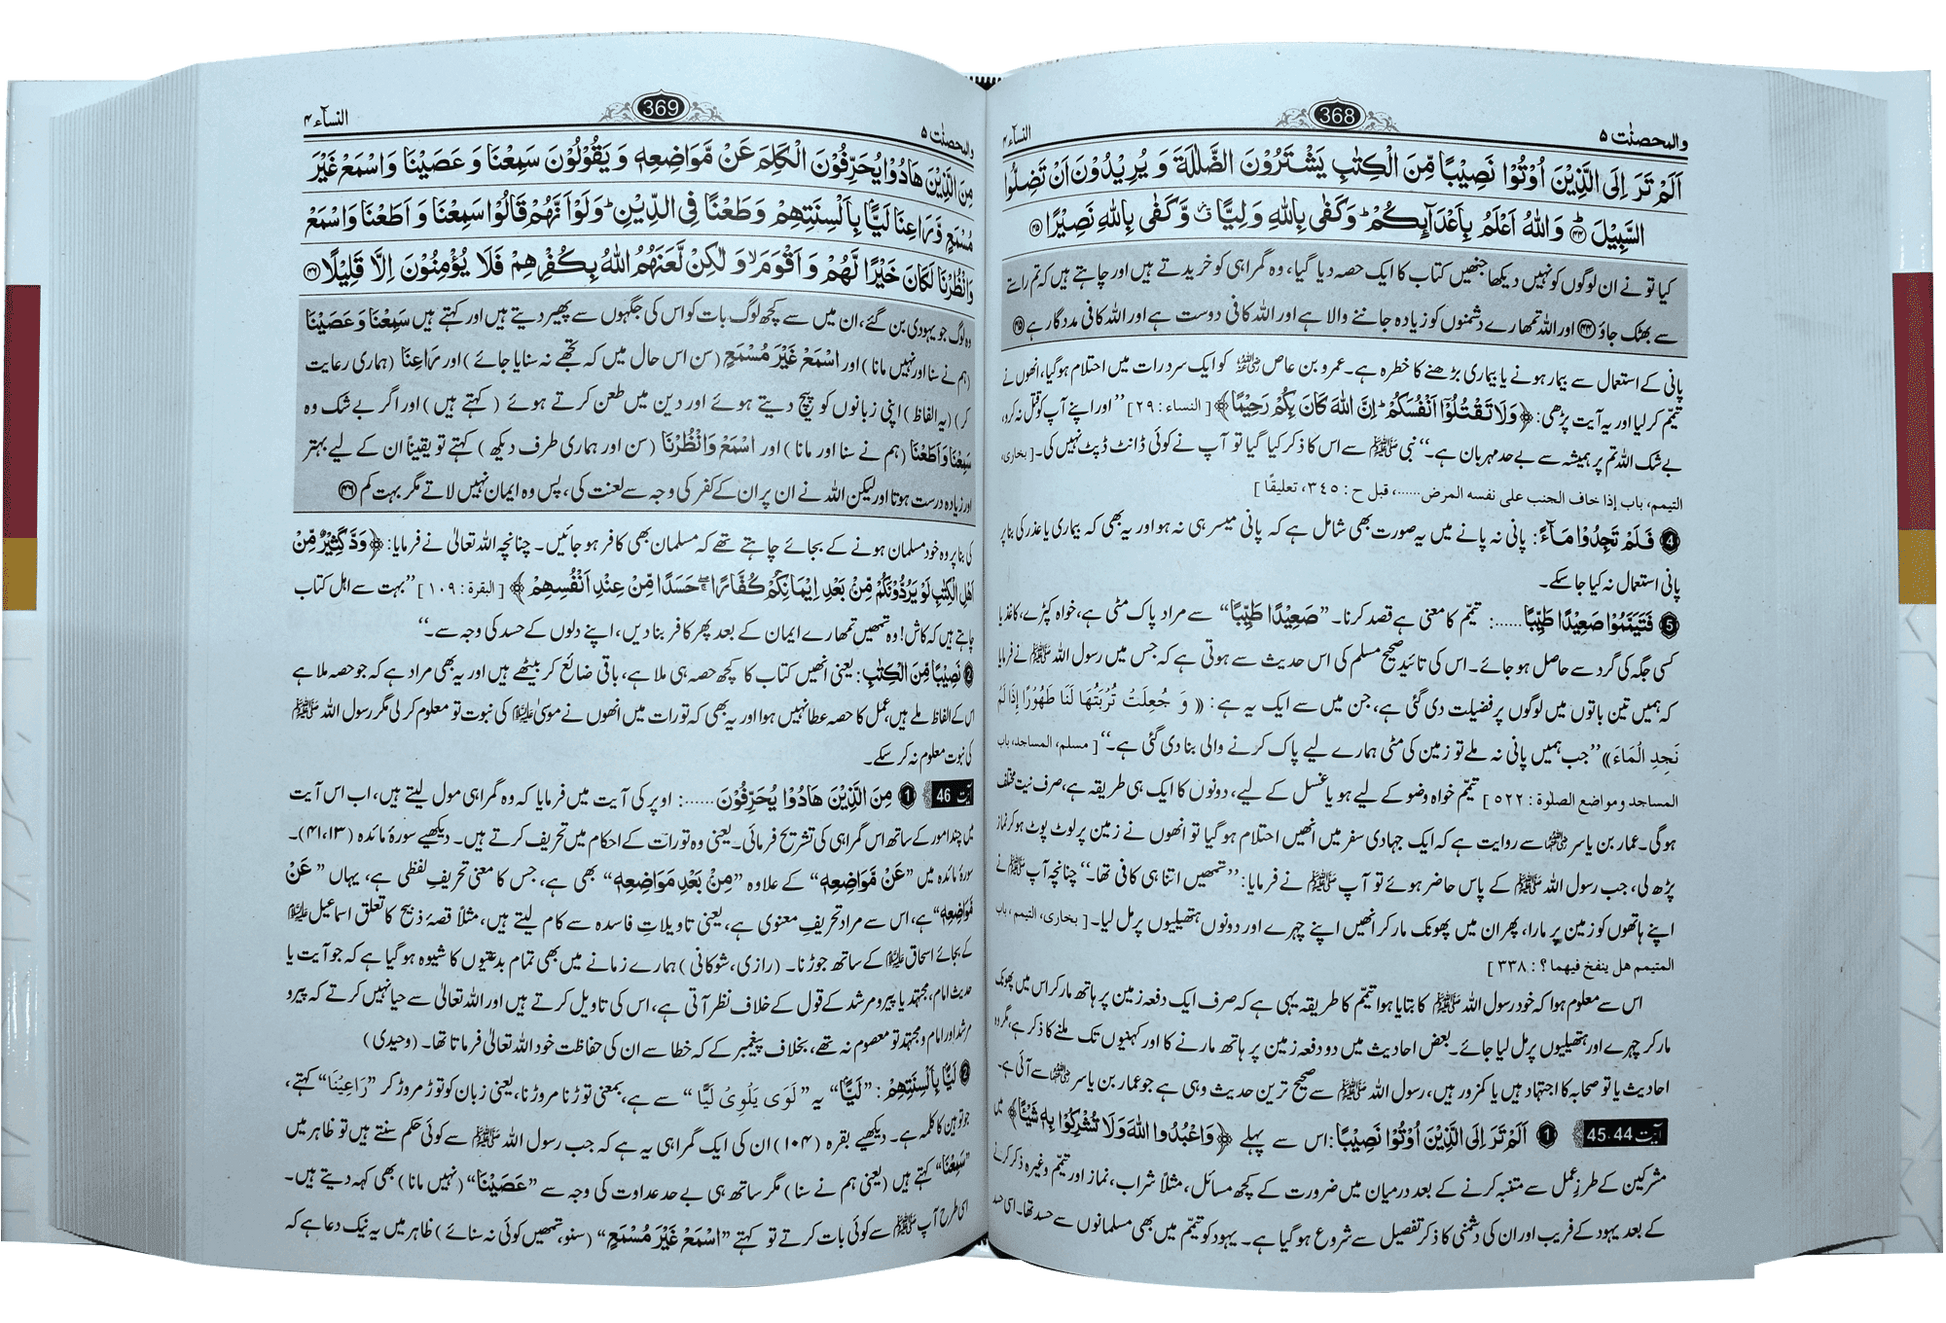 والمحصنٰت ۵
368
النسآء ۴
اَلَمْ تَرَ اِلَى الَّذِيْنَ اُوْتُوْا نَصِيْبًا مِّنَ الْكِتٰبِ يَشْتَرُوْنَ الضَّلٰلَةَ وَ يُرِيْدُوْنَ اَنْ تَضِلُّوا
السَّبِيْلَ ﴿۴۴﴾ وَ اللّٰهُ اَعْلَمُ بِاَعْدَآىِٕكُمْ ؕ وَ كَفٰى بِاللّٰهِ وَلِيًّا ۙ وَّ كَفٰى بِاللّٰهِ نَصِيْرًا ﴿۴۵﴾
کیا تو نے ان لوگوں کو نہیں دیکھا جنھیں کتاب کا ایک حصہ دیا گیا، وہ گمراہی کو خریدتے ہیں اور چاہتے ہیں کہ تم راستے
سے بھٹک جاؤ ﴿۴۴﴾ اور اللہ تمھارے دشمنوں کو زیادہ جاننے والا ہے اور اللہ کافی دوست ہے اور اللہ کافی مددگار ہے ﴿۴۵﴾
پانی کے استعمال سے بیمار ہونے یا بیماری بڑھنے کا خطرہ ہے۔ عمرو بن عاص رضی اللہ عنہ کو ایک سرد رات میں احتلام ہو گیا، انھوں نے
تیمم کر لیا اور یہ آیت پڑھی: ﴿ وَ لَا تَقْتُلُوْۤا اَنْفُسَكُمْ ؕ اِنَّ اللّٰهَ كَانَ بِكُمْ رَحِيْمًا ﴾ [ النساء : ۲۹ ] ”اور اپنے آپ کو قتل نہ کرو،
بے شک اللہ تم پر ہمیشہ سے بے حد مہربان ہے۔“ نبی ﷺ سے اس کا ذکر کیا گیا تو آپ نے کوئی ڈانٹ ڈپٹ نہیں کی۔ [ بخاری،
التیمم، باب إذا خاف الجنب علی نفسہ المرض……، قبل ح : ۳٤٥، تعلیقًا ]
4 فَلَمْ تَجِدُوْا مَآءً: پانی نہ پانے میں یہ صورت بھی شامل ہے کہ پانی میسر ہی نہ ہو اور یہ بھی کہ بیماری یا عذر کی بنا پر
پانی استعمال نہ کیا جا سکے۔
5 فَتَيَمَّمُوْا صَعِيْدًا طَيِّبًا……: تیمّم کا معنی ہے قصد کرنا۔ ”صَعِيْدًا طَيِّبًا“ سے مراد پاک مٹی ہے، خواہ کپڑے، کاغذ یا
کسی جگہ کی گرد سے حاصل ہو جائے۔ اس کی تائید صحیح مسلم کی اس حدیث سے ہوتی ہے کہ جس میں رسول اللہ ﷺ نے فرمایا
کہ ہمیں تین باتوں میں لوگوں پر فضیلت دی گئی ہے، جن میں سے ایک یہ ہے: « وَ جُعِلَتْ تُرْبَتُهَا لَنَا طَهُوْرًا إِذَا لَمْ
نَجِدِ الْمَاءَ » ”جب ہمیں پانی نہ ملے تو زمین کی مٹی ہمارے لیے پاک کرنے والی بنا دی گئی ہے۔“ [ مسلم، المساجد، باب
المساجد و مواضع الصلٰوۃ : ٥٢٢ ] تیمّم خواہ وضو کے لیے ہو یا غسل کے لیے، دونوں کا ایک ہی طریقہ ہے، صرف نیت مختلف
ہو گی۔ عمار بن یاسر رضی اللہ عنہما سے روایت ہے کہ ایک جہادی سفر میں انھیں احتلام ہو گیا تو انھوں نے زمین پر لوٹ پوٹ ہو کر نماز
پڑھ لی، جب رسول اللہ ﷺ کے پاس حاضر ہوئے تو آپ ﷺ نے فرمایا: ”تمھیں اتنا ہی کافی تھا۔“ چنانچہ آپ ﷺ نے
اپنے ہاتھوں کو زمین پر مارا، پھر ان میں پھونک مار کر انھیں اپنے چہرے اور دونوں ہتھیلیوں پر مل لیا۔ [ بخاری، التیمم، باب
المتیمم هل ینفخ فیهما؟ : ۳۳۸ ]
اس سے معلوم ہوا کہ خود رسول اللہ ﷺ کا بتایا ہوا تیمّم کا طریقہ یہی ہے کہ صرف ایک دفعہ زمین پر ہاتھ مار کر اس میں پھونک
مار کر چہرے اور ہتھیلیوں پر مل لیا جائے۔ بعض احادیث میں دو دفعہ زمین پر ہاتھ مارنے کا اور کہنیوں تک ملنے کا ذکر ہے، مگر وہ
احادیث یا تو صحابہ کا اجتہاد ہیں یا کمزور ہیں، رسول اللہ ﷺ سے صحیح ترین حدیث وہی ہے جو عمار بن یاسر رضی اللہ عنہما سے آئی ہے۔
آیت 45.44 1 اَلَمْ تَرَ اِلَى الَّذِيْنَ اُوْتُوْا نَصِيْبًا: اس سے پہلے ﴿ وَ اعْبُدُوا اللّٰهَ وَ لَا تُشْرِكُوْا بِهٖ شَيْـًٔا ﴾ میں
مشرکین کے طرز عمل سے متنبہ کرنے کے بعد درمیان میں ضرورت کے کچھ مسائل، مثلاً شراب، نماز اور تیمّم وغیرہ ذکر کرنے
کے بعد یہود کے فریب اور ان کی دشمنی کا ذکر تفصیل سے شروع ہو گیا ہے۔ یہود کو تیمّم میں بھی مسلمانوں سے حسد تھا۔ اسی حسد
والمحصنٰت ۵
369
النسآء ۴
مِنَ الَّذِيْنَ هَادُوْا يُحَرِّفُوْنَ الْكَلِمَ عَنْ مَّوَاضِعِهٖ وَ يَقُوْلُوْنَ سَمِعْنَا وَ عَصَيْنَا وَ اسْمَعْ غَيْرَ
مُسْمَعٍ وَّ رَاعِنَا لَيًّۢا بِاَلْسِنَتِهِمْ وَ طَعْنًا فِى الدِّيْنِ ؕ وَ لَوْ اَنَّهُمْ قَالُوْا سَمِعْنَا وَ اَطَعْنَا وَ اسْمَعْ
وَ انْظُرْنَا لَكَانَ خَيْرًا لَّهُمْ وَ اَقْوَمَ ۙ وَ لٰكِنْ لَّعَنَهُمُ اللّٰهُ بِكُفْرِهِمْ فَلَا يُؤْمِنُوْنَ اِلَّا قَلِيْلًا ﴿۴۶﴾
وہ لوگ جو یہودی بن گئے، ان میں سے کچھ لوگ بات کو اس کی جگہوں سے پھیر دیتے ہیں اور کہتے ہیں سَمِعْنَا وَ عَصَيْنَا
(ہم نے سنا اور نہیں مانا) اور اسْمَعْ غَيْرَ مُسْمَعٍ (سن اس حال میں کہ تجھے نہ سنایا جائے) اور رَاعِنَا (ہماری رعایت
کر) (یہ الفاظ) اپنی زبانوں کو پیچ دیتے ہوئے اور دین میں طعن کرتے ہوئے (کہتے ہیں) اور اگر بے شک وہ
سَمِعْنَا وَ اَطَعْنَا (ہم نے سنا اور مانا) اور اسْمَعْ وَ انْظُرْنَا (سن اور ہماری طرف دیکھ) کہتے تو یقیناً ان کے لیے بہتر
اور زیادہ درست ہوتا اور لیکن اللہ نے ان پر ان کے کفر کی وجہ سے لعنت کی، پس وہ ایمان نہیں لاتے مگر بہت کم ﴿۴۶﴾
کی بنا پر وہ خود مسلمان ہونے کے بجائے چاہتے تھے کہ مسلمان بھی کافر ہو جائیں۔ چنانچہ اللہ تعالیٰ نے فرمایا: ﴿ وَدَّ كَثِيْرٌ مِّنْ
اَهْلِ الْكِتٰبِ لَوْ يَرُدُّوْنَكُمْ مِّنْۢ بَعْدِ اِيْمَانِكُمْ كُفَّارًا ۖۚ حَسَدًا مِّنْ عِنْدِ اَنْفُسِهِمْ ﴾ [ البقرة : ۱۰۹ ] ”بہت سے اہل کتاب
چاہتے ہیں کہ کاش! وہ تمھیں تمھارے ایمان کے بعد پھر کافر بنا دیں، اپنے دلوں کے حسد کی وجہ سے۔“
2 نَصِيْبًا مِّنَ الْكِتٰبِ: یعنی انھیں کتاب کا کچھ حصہ ہی ملا ہے، باقی ضائع کر بیٹھے ہیں اور یہ بھی مراد ہے کہ جو حصہ ملا ہے
اس کے الفاظ ملے ہیں، عمل کا حصہ عطا نہیں ہوا اور یہ بھی کہ تورات میں انھوں نے موسیٰ علیہ السلام کی نبوت تو معلوم کر لی مگر رسول اللہ ﷺ
کی نبوت معلوم نہ کر سکے۔
آیت 46 1 مِنَ الَّذِيْنَ هَادُوْا يُحَرِّفُوْنَ……: اوپر کی آیت میں فرمایا کہ وہ گمراہی مول لیتے ہیں، اب اس آیت
میں چند امور کے ساتھ اس گمراہی کی تشریح فرمائی۔ یعنی وہ تورات کے احکام میں تحریف کرتے ہیں۔ دیکھیے سورۂ مائدہ (۴۱،۱۳)۔
سورۂ مائدہ میں ”عَنْ مَّوَاضِعِهٖ“ کے علاوہ ”مِنْۢ بَعْدِ مَوَاضِعِهٖ“ بھی ہے، جس کا معنی تحریف لفظی ہے، یہاں ”عَنْ
مَّوَاضِعِهٖ“ ہے، اس سے مراد تحریف معنوی ہے، یعنی تاویلاتِ فاسدہ سے کام لیتے ہیں، مثلاً قصۂ ذبیح کا تعلق اسماعیل علیہ السلام
کے بجائے اسحاق علیہ السلام کے ساتھ جوڑنا۔ (رازی، شوکانی) ہمارے زمانے میں بھی تمام بدعتیوں کا شیوہ ہو گیا ہے کہ جو آیت یا
حدیث امام، مجتہد یا پیر و مرشد کے قول کے خلاف نظر آتی ہے، اس کی تاویل کرتے ہیں اور اللہ تعالیٰ سے حیا نہیں کرتے کہ پیر و
مرشد اور امام و مجتہد تو معصوم نہ تھے، بخلاف پیغمبر کے کہ خطا سے ان کی حفاظت خود اللہ تعالیٰ فرماتا تھا۔ (وحیدی)
2 لَيًّۢا بِاَلْسِنَتِهِمْ: ”لَيًّا“ یہ ”لَوَى يَلْوِيْ لَيًّا“ سے ہے، بمعنی توڑنا مروڑنا، یعنی زبان کو توڑ مروڑ کر ”رَاعِيْنَا“ کہتے،
جو توہین کا کلمہ ہے۔ دیکھیے بقرہ (۱۰۴) ان کی ایک گمراہی یہ ہے کہ جب رسول اللہ ﷺ سے کوئی حکم سنتے ہیں تو ظاہر میں
”سَمِعْنَا“ کہتے ہیں (یعنی ہم نے سنا) مگر ساتھ ہی بے حد عداوت کی وجہ سے ”عَصَيْنَا“ (نہیں مانا) بھی کہہ دیتے ہیں۔
اسی طرح آپ ﷺ سے کوئی بات کرتے تو کہتے ”اسْمَعْ غَيْرَ مُسْمَعٍ“ (سنو، تمھیں کوئی نہ سنائے) ظاہر میں یہ نیک دعا ہے کہ